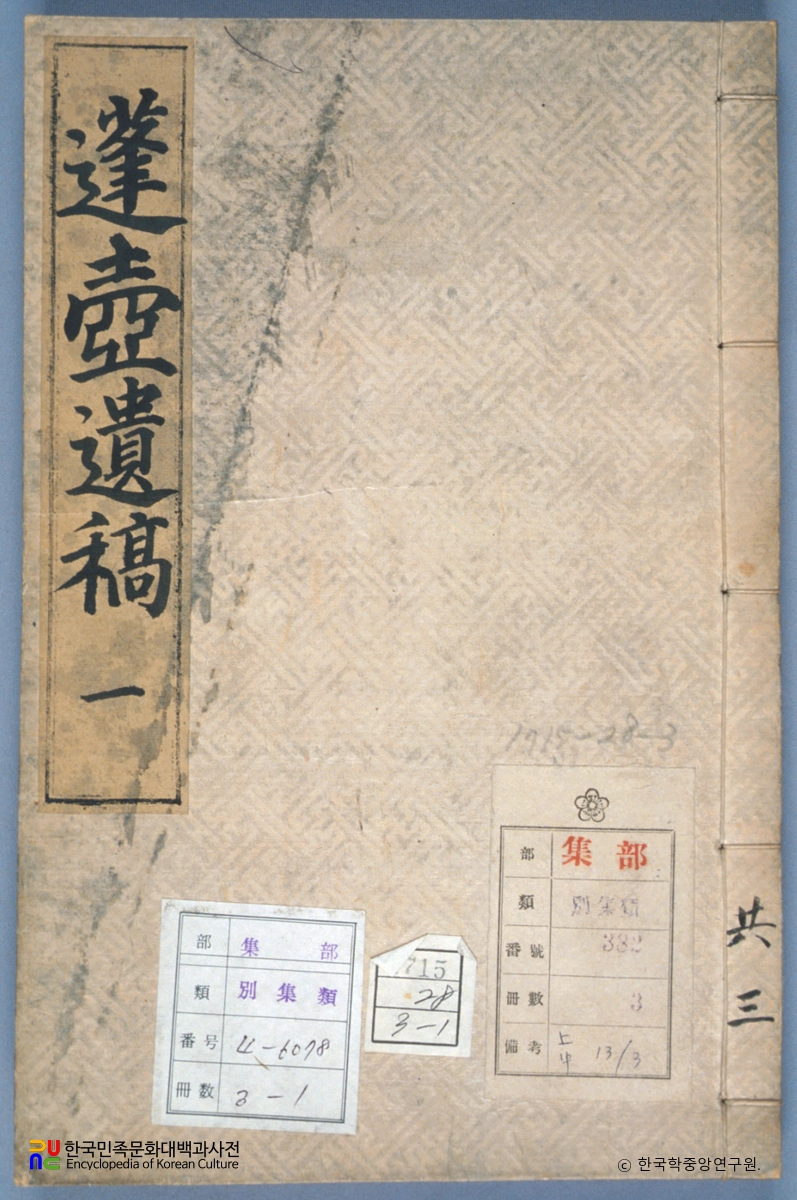 蓬壺遺稿 一
共三
1715-28-3
部 集部
類 別集類
番號 332
冊數 3
備考 13/3
部 集部
類 別集類
番号 4-6078
冊数 3-1
715
28
3-1
한국민족문화대백과사전
Encyclopedia of Korean Culture
© 한국학중앙연구원.